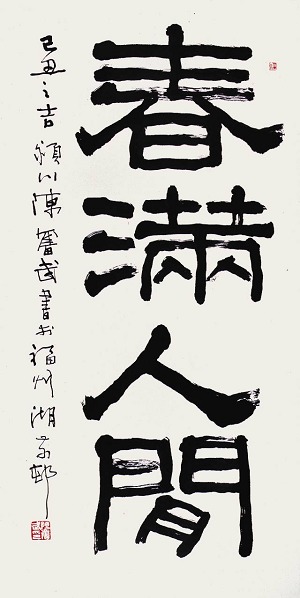 春滿人閒
己丑之吉潁川陳奮武書於福州湖邨